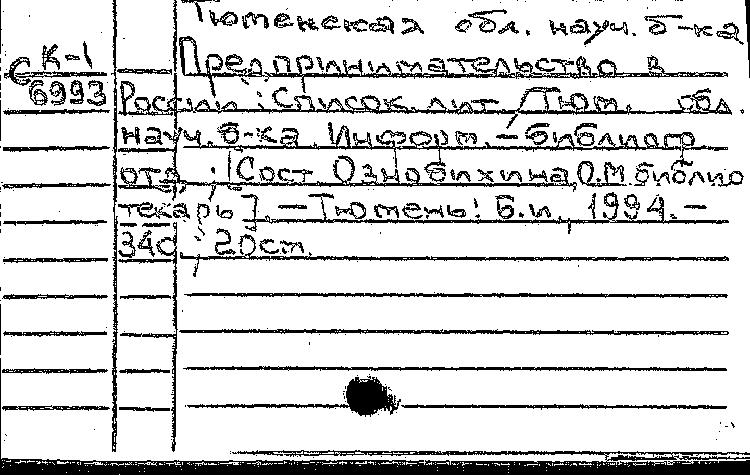 Тюменская обл. науч. б-ка
К-1 Предпринимательство в
С 6993 России: Список лит. / Тюм. обл.
науч. б-ка. Информ.-библиогр
отд.; [Сост. Ознобихина, О.М библио
текарь]. — Тюмень: Б.и., 1994. —
34с; 20см.